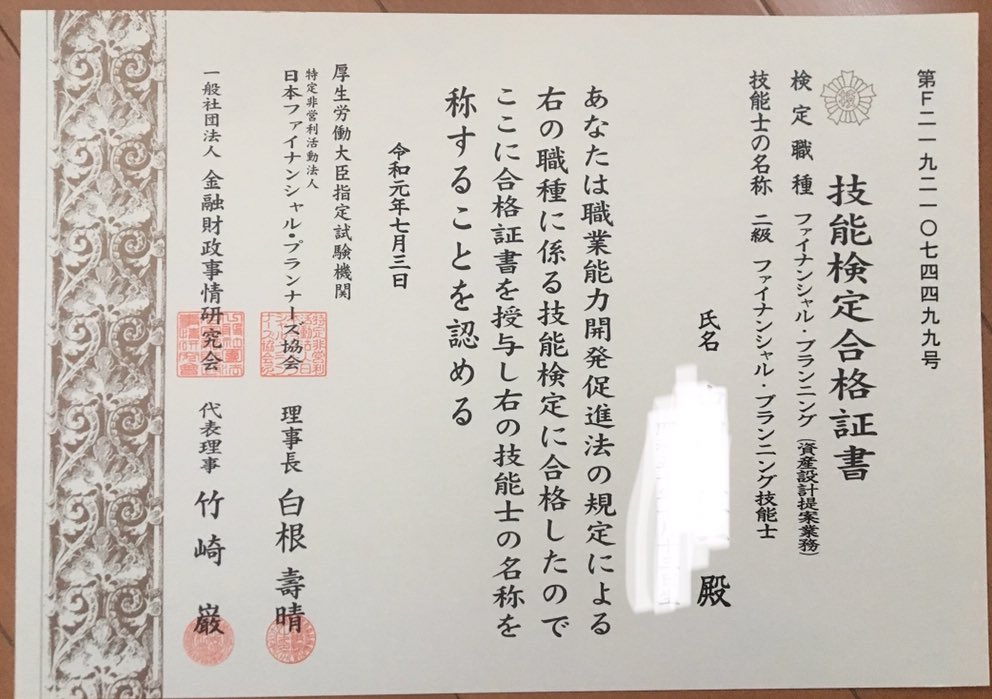 第F二一九二一〇七四四九九号
技能検定合格証書
検定職種 ファイナンシャル・プランニング(資産設計提案業務)
技能士の名称 二級 ファイナンシャル・プランニング技能士
氏名 殿
あなたは職業能力開発促進法の規定による
右の職種に係る技能検定に合格したので
ここに合格証書を授与し右の技能士の名称を
称することを認める
令和元年七月三日
厚生労働大臣指定試験機関
特定非営利活動法人
日本ファイナンシャル・プランナーズ協会 理事長 白根壽晴
一般社団法人 金融財政事情研究会 代表理事 竹崎巌